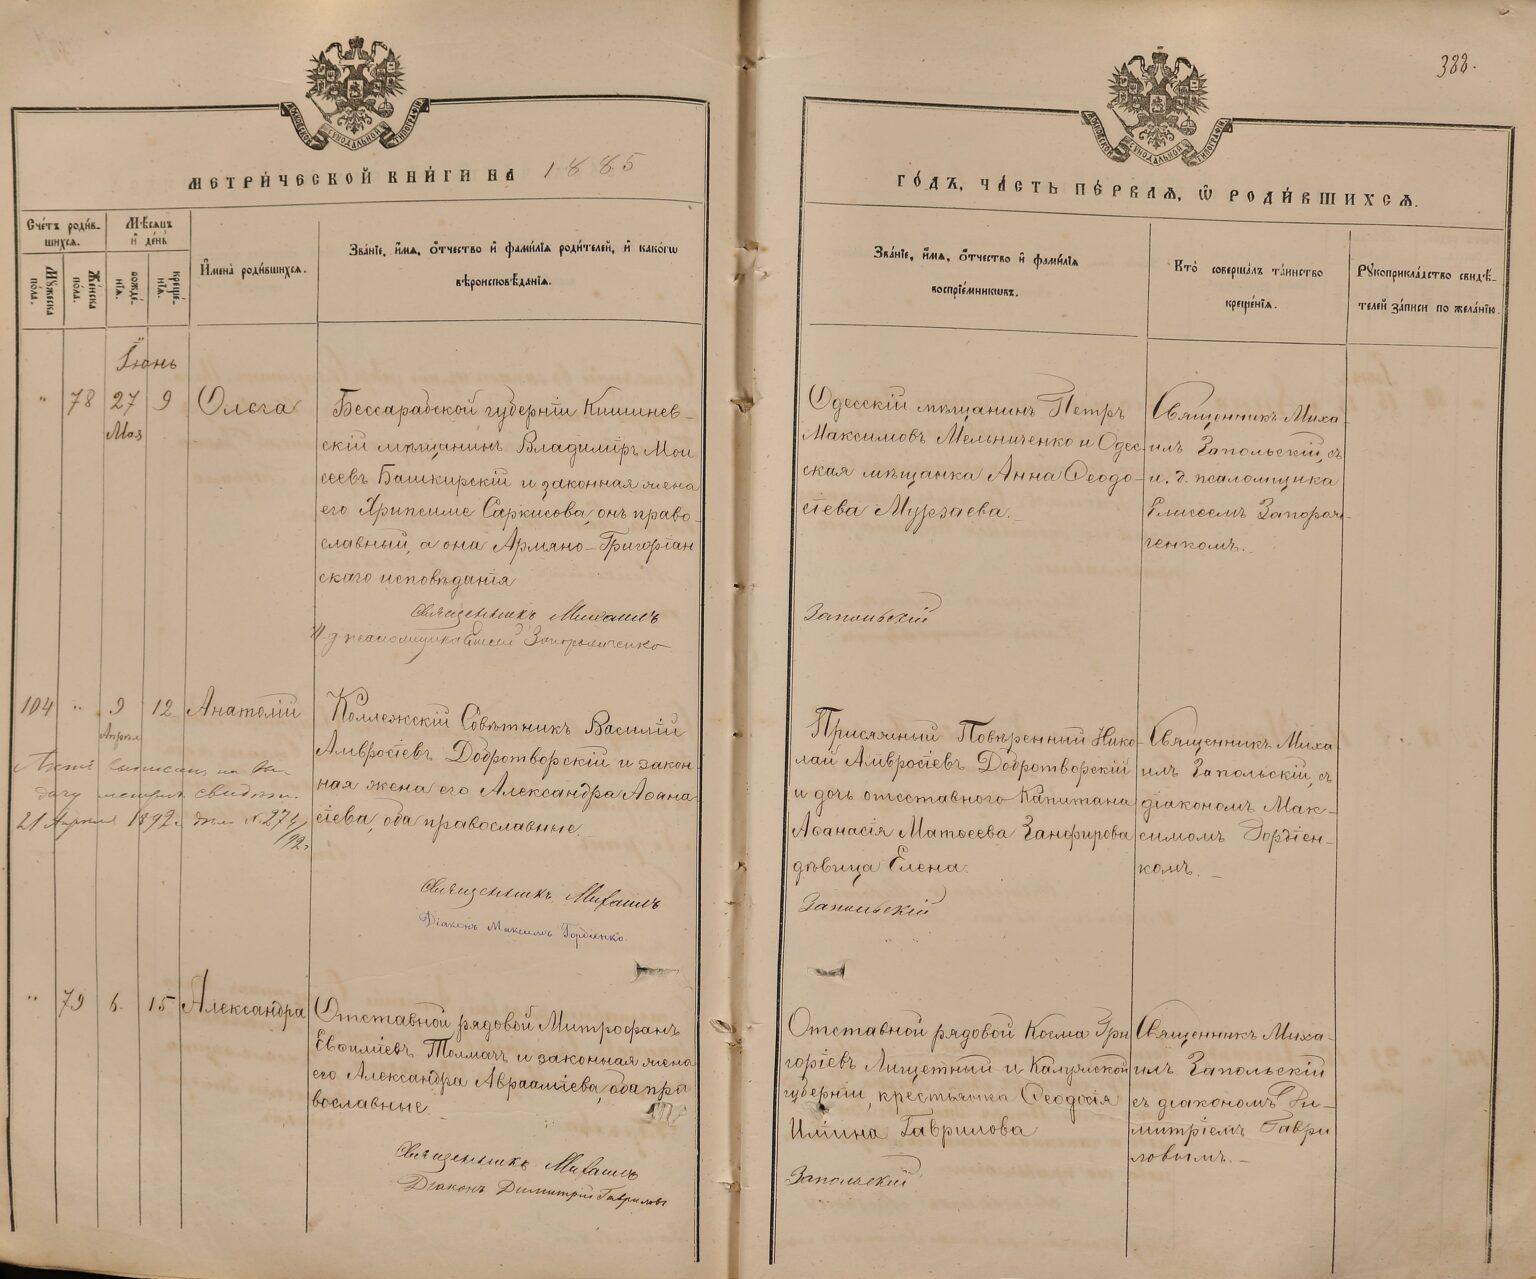 388.
МОСКОВСКОЙ СѴНОДАЛЬНОЙ ТИПОГРАФІИ
МОСКОВСКОЙ СѴНОДАЛЬНОЙ ТИПОГРАФІИ
МЕТРИ́ЧЕСКОЙ КНИ́ГИ НА 1885
ГО́ДЪ, ЧА́СТЬ ПЕ́РВАЯ, Ѽ РОДИ́ВШИХСЯ.
Сче́тъ роди́в-
шихся.
Мѣ́сяцъ
и҆ де́нь
Му́жеска по́ла.
Же́нска пола.
рожде́-
нїѧ.
креще́-
нїѧ.
И҆мена̀ роди́вшихся.
Зва́нїе, и҆́мѧ, ѻ҆́тчество и҆ фами́лїѧ роди́телей, и҆ како́гѡ
вѣроисповѣ́данїѧ.
Зва́нїе, и҆́мѧ, ѻ҆́тчество и҆ фами́лїѧ
воспрїе́мникѡвъ.
Кто̀ соверша́лъ та́инство
креще́нїѧ.
Рꙋкоприкла́дство свидѣ́-
телей за́писи по жела́нїю.
Іюнь
" 78 27 9 Ольга
Мая
Бессарабской губерніи Кишинев-
скій мѣщанинъ Владиміръ Мои
сеевъ Башкирскій и законная жена
его Хрипсиме Саркисова, онъ право-
славный, а она Армяно-Григоріан
скаго исповѣданія
Священникъ Михаилъ
И. д. псаломщика Елисей Запорожченко
Одесскій мѣщанинъ Петръ
Максимовъ Мельниченко и Одес
ская мѣщанка Анна Ѳеодо-
сіева Мурзаева.
Запольскій
Священникъ Миха-
илъ Запольскій, съ
и. д. псаломщика
Елисеемъ Запорож-
ченкомъ.
104 " 9 12 Анатолій
Апрѣля
Актъ выписанъ на вы-
дачу метрич. свидѣт.
21 Апрѣля 1892 г. № 274/92 г.
Коллежскій Совѣтникъ Василій
Амвросіевъ Добротворскій и закон-
ная жена его Александра Аѳана-
сіева, оба православные
Священникъ Михаилъ
Діаконъ Максимъ Гордіенко.
Присяжный Повѣренный Нико-
лай Амвросіевъ Добротворскій
и дочь отставного Капитана
Аѳанасія Матѳеева Занфирова
дѣвица Елена.
Запольскій
Священникъ Миха
илъ Запольскій, съ
діакономъ Мак-
симомъ Гордіен-
комъ.
" 79 6. 15 Александра
Отставной рядовой Митрофанъ
Евфиміевъ Толмачъ и законная жена
его Александра Авраамiева, оба пра
вославные
Священникъ Михаилъ
Діаконъ Димитрій Гавриловъ
Отставной рядовой Косма Гри
горіевъ Лищетный и Калужской
губерніи, крестьянка Ѳеодосія
Имина Гаврилова
Запольскій
Священникъ Миха-
илъ Запольскій
съ діакономъ Ди-
митріемъ Гаври
ловымъ.